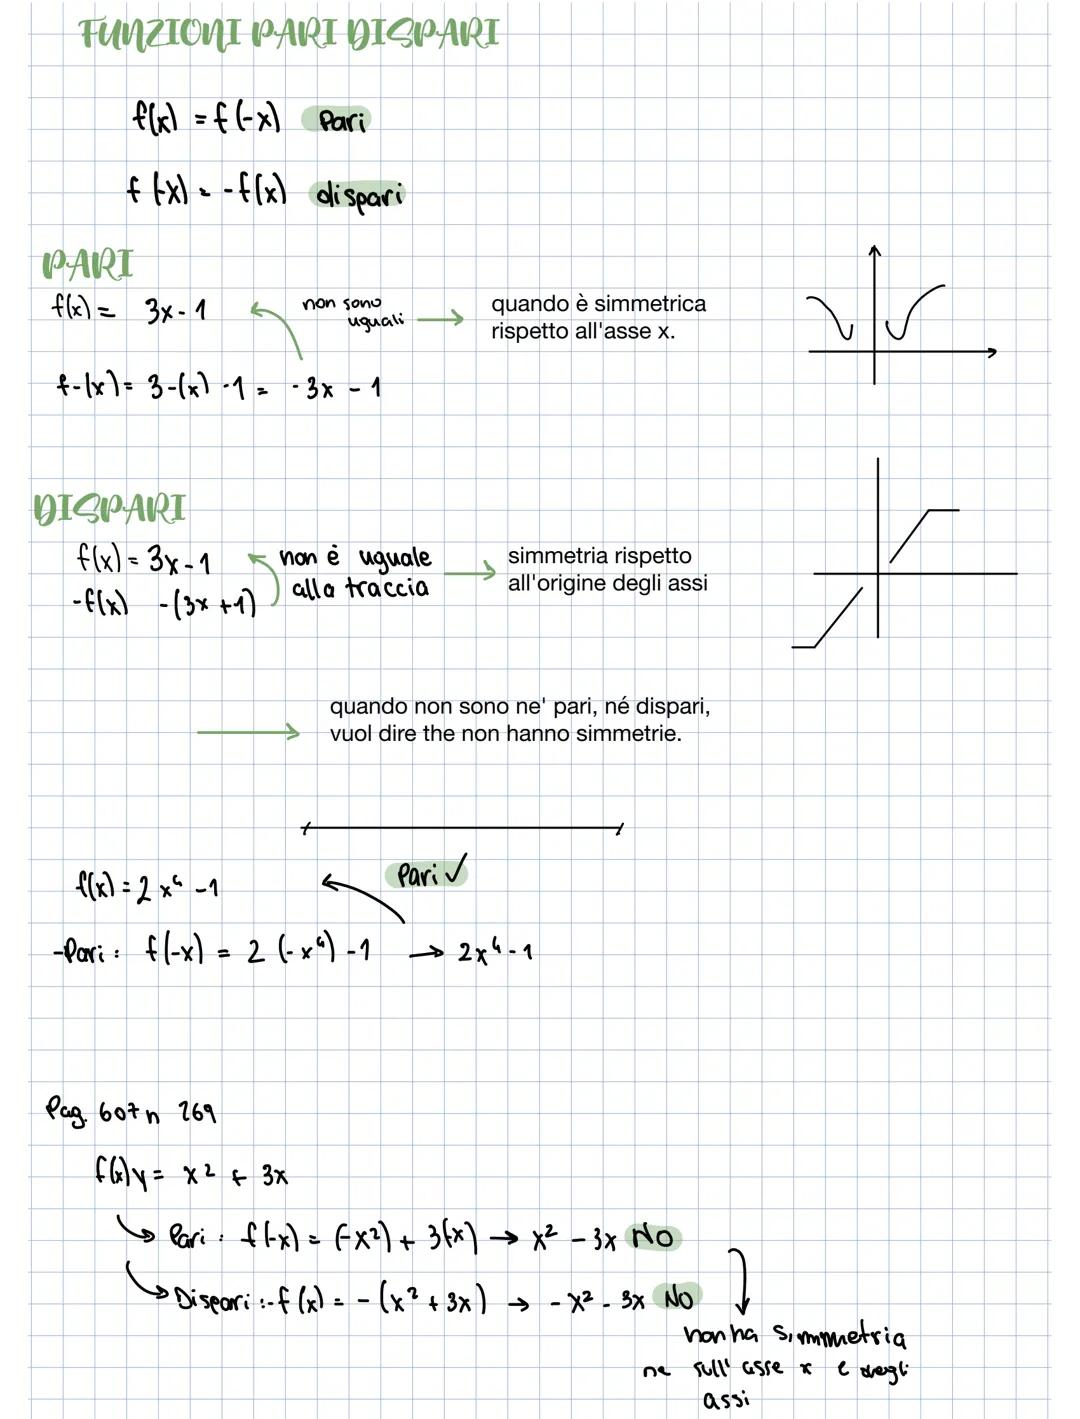 FUNZIONI PARI DISPARI
f(x) = f(-x) Pari
f(-x) = -f(x) dispari
PARI
f(x) = 3x - 1
non sono
uguali
quando è simmetrica
rispetto all'asse x.
f-(x) = 3-(x) - 1 = -3x - 1
DISPARI
f(x) = 3x - 1
-f(x) -(3x + 1)
non è uguale
alla traccia
simmetria rispetto
all'origine degli assi
quando non sono ne' pari, né dispari,
vuol dire the non hanno simmetrie.
Pari ✓
f(x) = 2x⁴ - 1
-Pari: f(-x) = 2(-x⁴) - 1 → 2x⁴ - 1
Pag. 607 n 269
f(x) y = x² + 3x
Pari: f(-x) = (-x²) + 3(-x) → x² - 3x NO
Dispari: -f(x) = -(x² + 3x) → -x² - 3x NO
non ha simmetria
ne sull'asse x e degli
assi